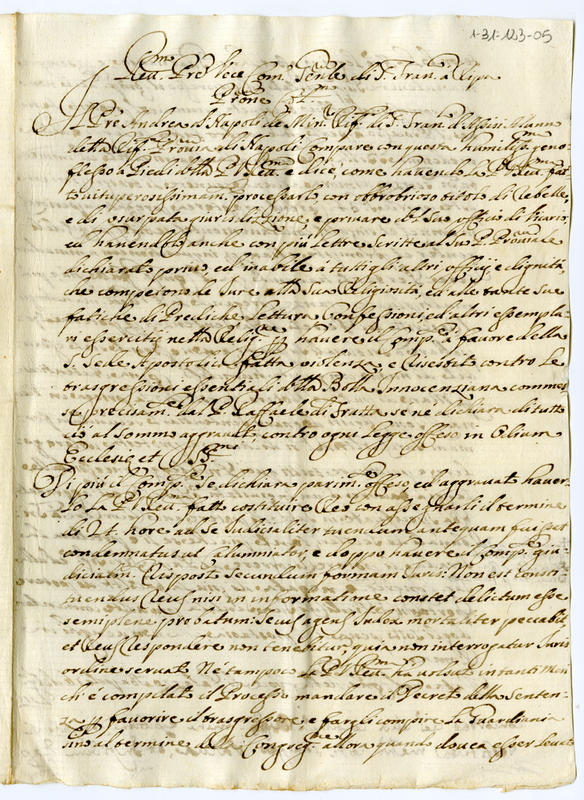 1-31-123-05
Rev. Pre Vice Com. Gnle di S. Fran. a Ripa
Prone
Il Pre Andrea di Napoli de Min. Rif. di S. Fran. d'Assisi Alunno
della Rif. Provia di Napoli compare con questa humiliss. geno
flesso a Piedi della P. V. Rev. e dice, come havendolo la P. V. Rev. fat
to vituperosissimam. processarlo con obbrobrioso titolo di Rebelle,
e di usurpata giurisdizione, e privare del suo officio di Vicario,
ed havendolo anche con più lettere scritte al suo P. Provinciale
dichiarato privo, ed inabile a tutti gli altri officij e dignità,
che competono de Jure alla sua Religiosità, ed alle tante sue
fatiche di Prediche Lettura Confessioni ed altri essempla-
ri essercitij nella Relig. havere il Comp. a favore della
S. Sede Apostolica fatta violenza, e contro le
trasgressioni essentiali della Bolla Innocenziana commes
se precisam. dal P. Raffaele di Fratta se ne dichiara di tutto
ciò al sommo aggravato, contro ogni Legge offeso in Odium
Ecclesie et
Di più il Comp. se dichiara parim. offeso, ed aggravato haver
lo la P. V. Rev. fatto costituire Reo con assegnarli il termine
di 24 hore ad se Judicialiter tuendum antequam fuisset
condemnatus ut calumniator, e doppo havere il Comp. giu-
dicialm. risposto secundum formam Juris: Non est consti-
tuendus Reus nisi in informatione constet delictum esse
semiplene probatum: secus agens Judex mortaliter peccabit
et Reus respondere non tenebitur, quia non interrogatur Juris
ordine servato. Nè tampoco la P. V. Rev. ha voluto intanto men
che è compilato il Processo mandare il Decreto della Senten-
za favorire il trasgressore, e fargli compire la Guardiania
sino al termine della Congreg. allora quando dovea esser levato